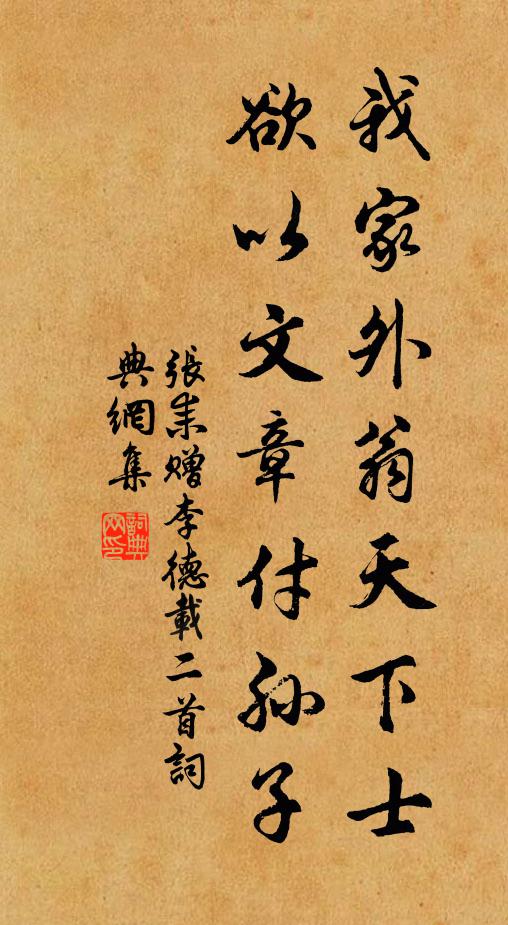 我家外翁天下士
欲以文章付孙子
張耒贈李德載二首詞
典網集
詞典
网印